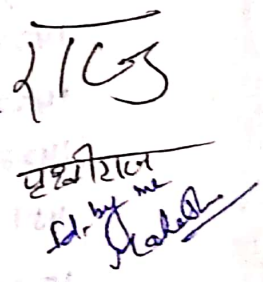 राज
पृथ्वीराज
Id. by me